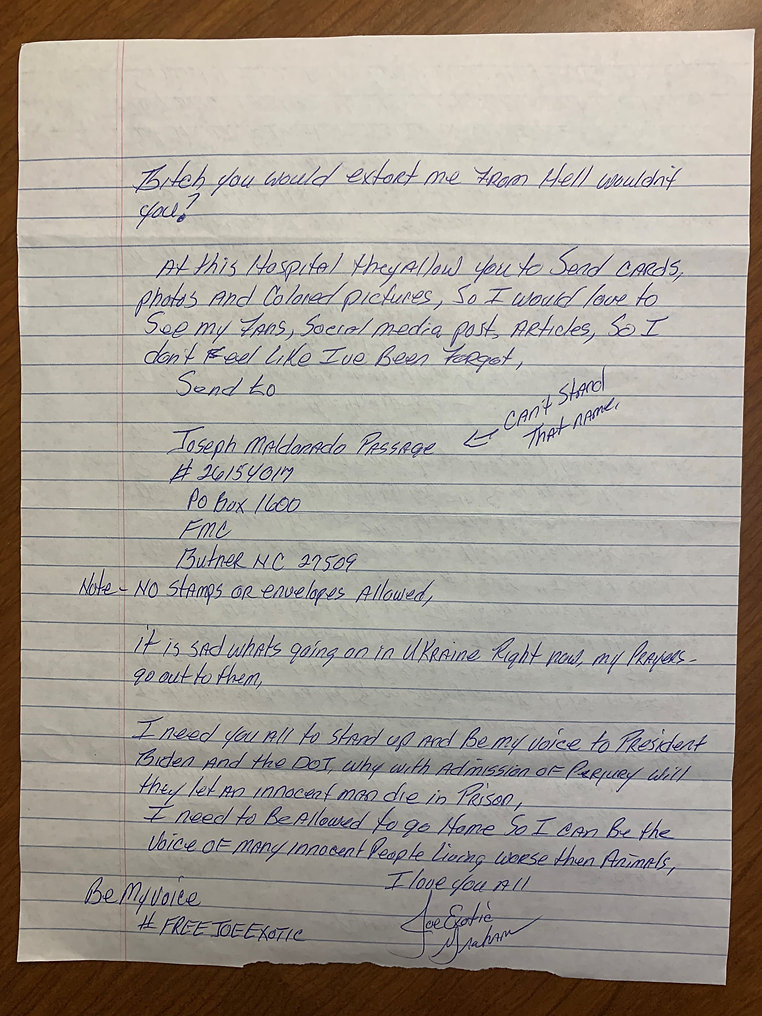 Bitch you would extort me From Hell wouldn't
you?
At this Hospital they Allow you to Send cards,
photos And Colored pictures, So I would love to
See my Fans, Social media post, Articles, So I
don't Feel like I've Been Forgot,
Send to
Joseph Maldonado Passage
Can't Stand
That name.
# 26154017
PO Box 1600
FMC
Butner NC 27509
Note - NO Stamps or envelopes Allowed,
it is sad whats going on in Ukraine Right now, my Prayers -
go out to them,
I need you All to stand up and Be my voice to President
Biden And the DOJ, why with Admission of Perjury will
they let An innocent man die in Prison,
I need to Be Allowed to go Home So I can Be the
Voice of many innocent People Living worse then Animals,
I love you All
Be My Voice
# FREEJOEEXOTIC
Joe Exotic